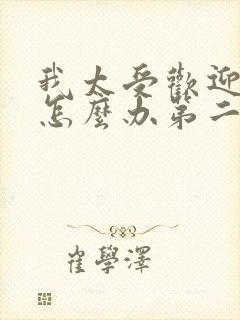 我太受歡迎
怎麼办第二
崔學澤